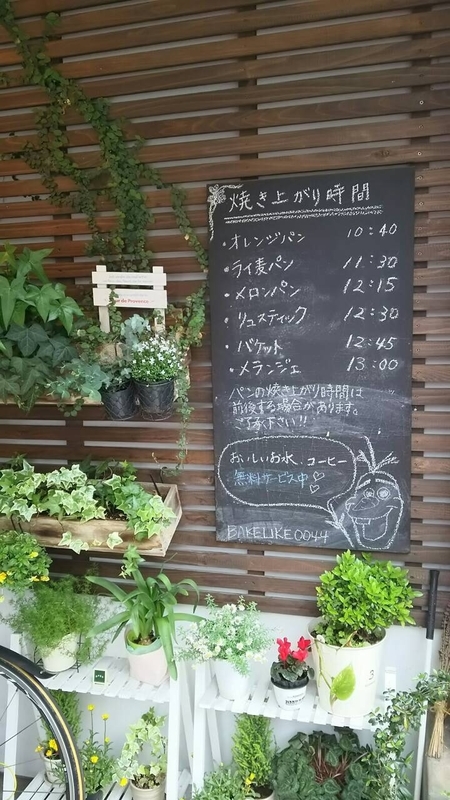 焼き上がり時間
・オレンジパン 10:40
・ライ麦パン 11:30
・メロンパン 12:15
・リュスティック 12:30
・バケット 12:45
・メランジェ 13:00
パンの焼き上がり時間は
前後する場合があります。
ご了承下さい!!
おいしいお水、コーヒー
無料サービス中♡
BAKELIKE0044
de Provence